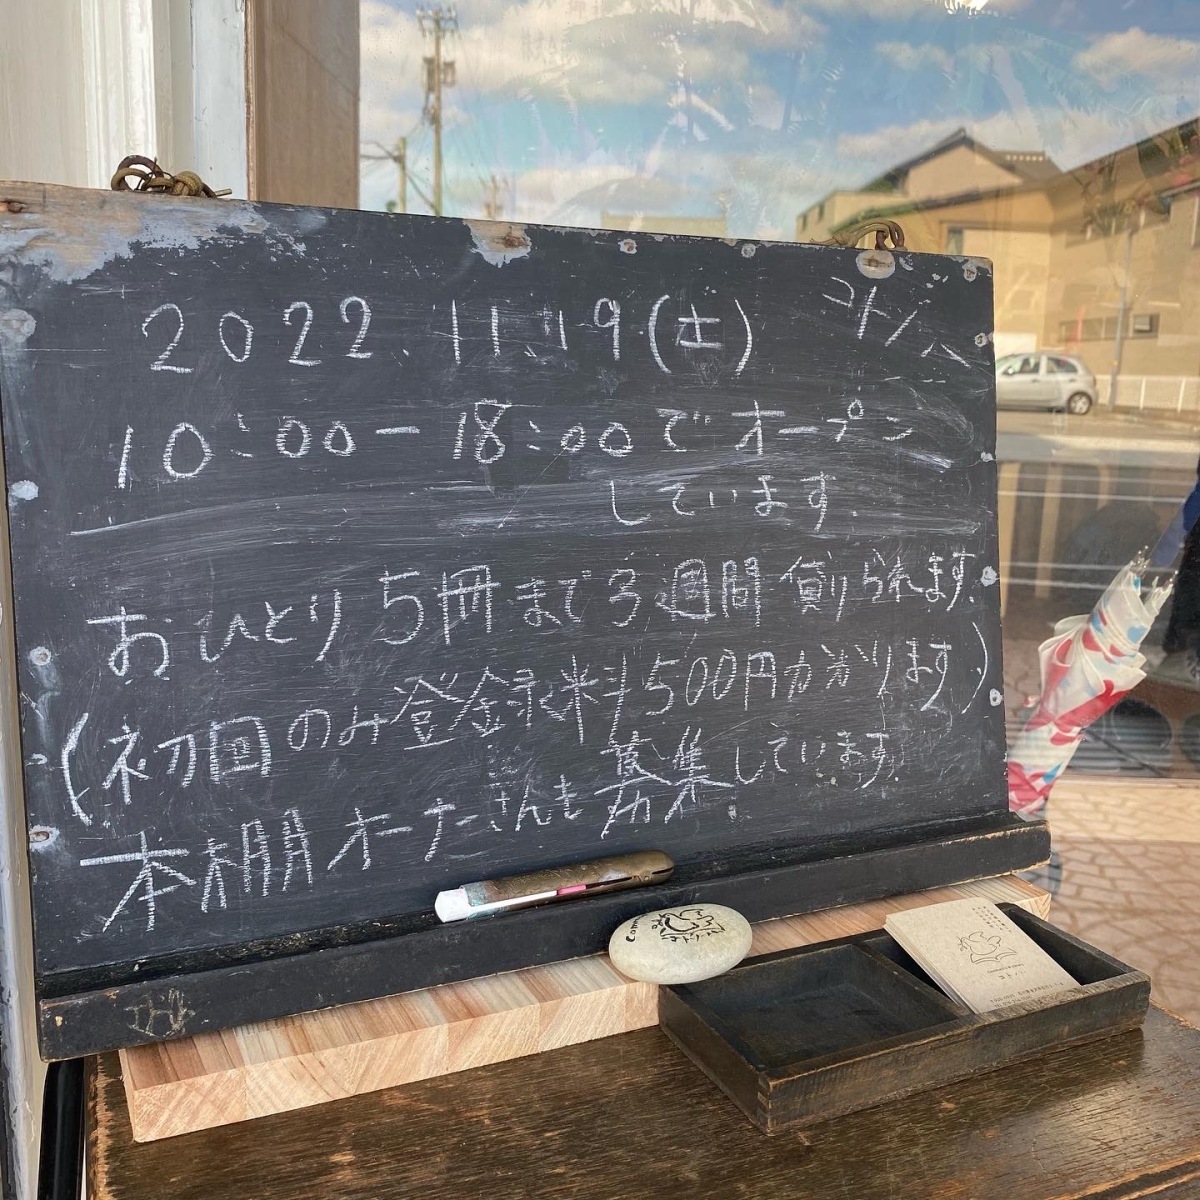 2022.11.19(土)
コトノハ
10:00-18:00でオープン
しています.
おひとり5冊まで3週間借りられます.
(初回のみ登録料500円かかります)
本棚オーナーさんも募集しています.